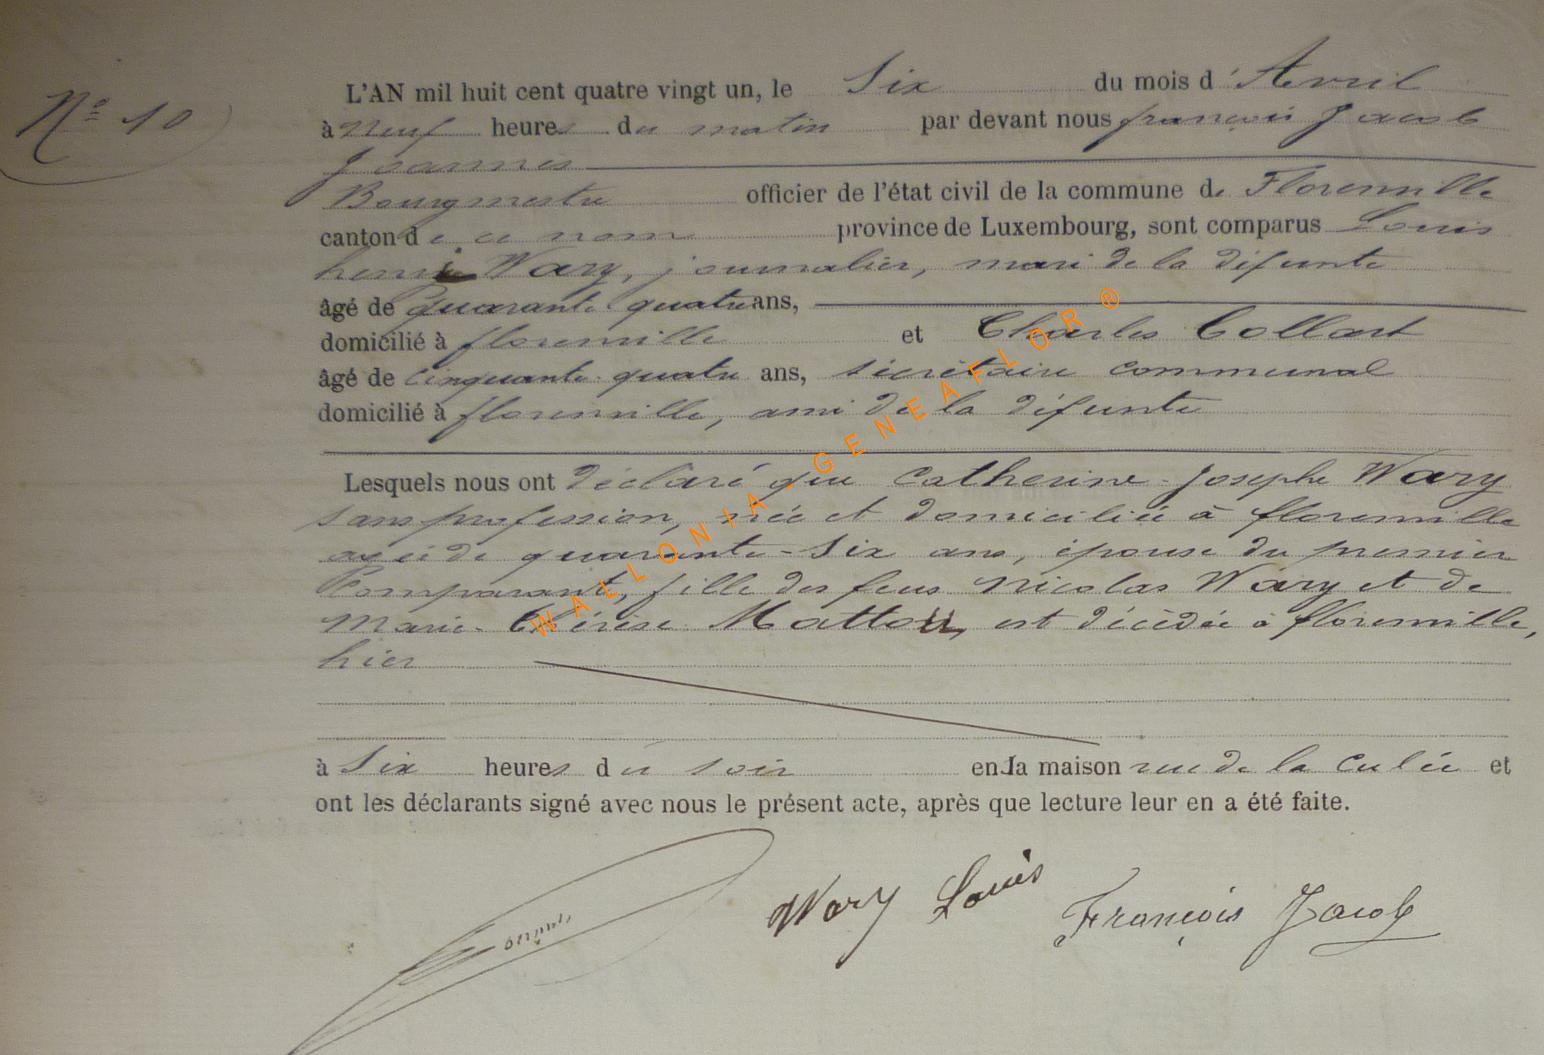 Nº 10
L'AN mil huit cent quatre vingt un, le Six du mois d'Avril
à Neuf heures du matin par devant nous françois Jacob
Joannes
Bourgmestre officier de l'état civil de la commune de Florenville
canton de ce nom province de Luxembourg, sont comparus Louis
henri Wary, journalier, mari de la défunte
âgé de quarante quatre ans,
domicilié à florenville et Charles Collart
âgé de cinquante-quatre ans, sécrétaire communal
domicilié à florenville, ami de la défunte
Lesquels nous ont déclaré que Catherine-Josephe Wary
sans profession, née et domiciliée à florenville
agée de quarante-six ans, épouse du premier
Comparant, fille des feus Nicolas Wary et de
Marie-Thérèse Mattou, est décédée à florenville,
hier
à Six heures du soir en la maison rue de la Culée et
ont les déclarants signé avec nous le présent acte, après que lecture leur en a été faite.
Wary Louis François Jacob
WALLONIA-GENEAFLOR®